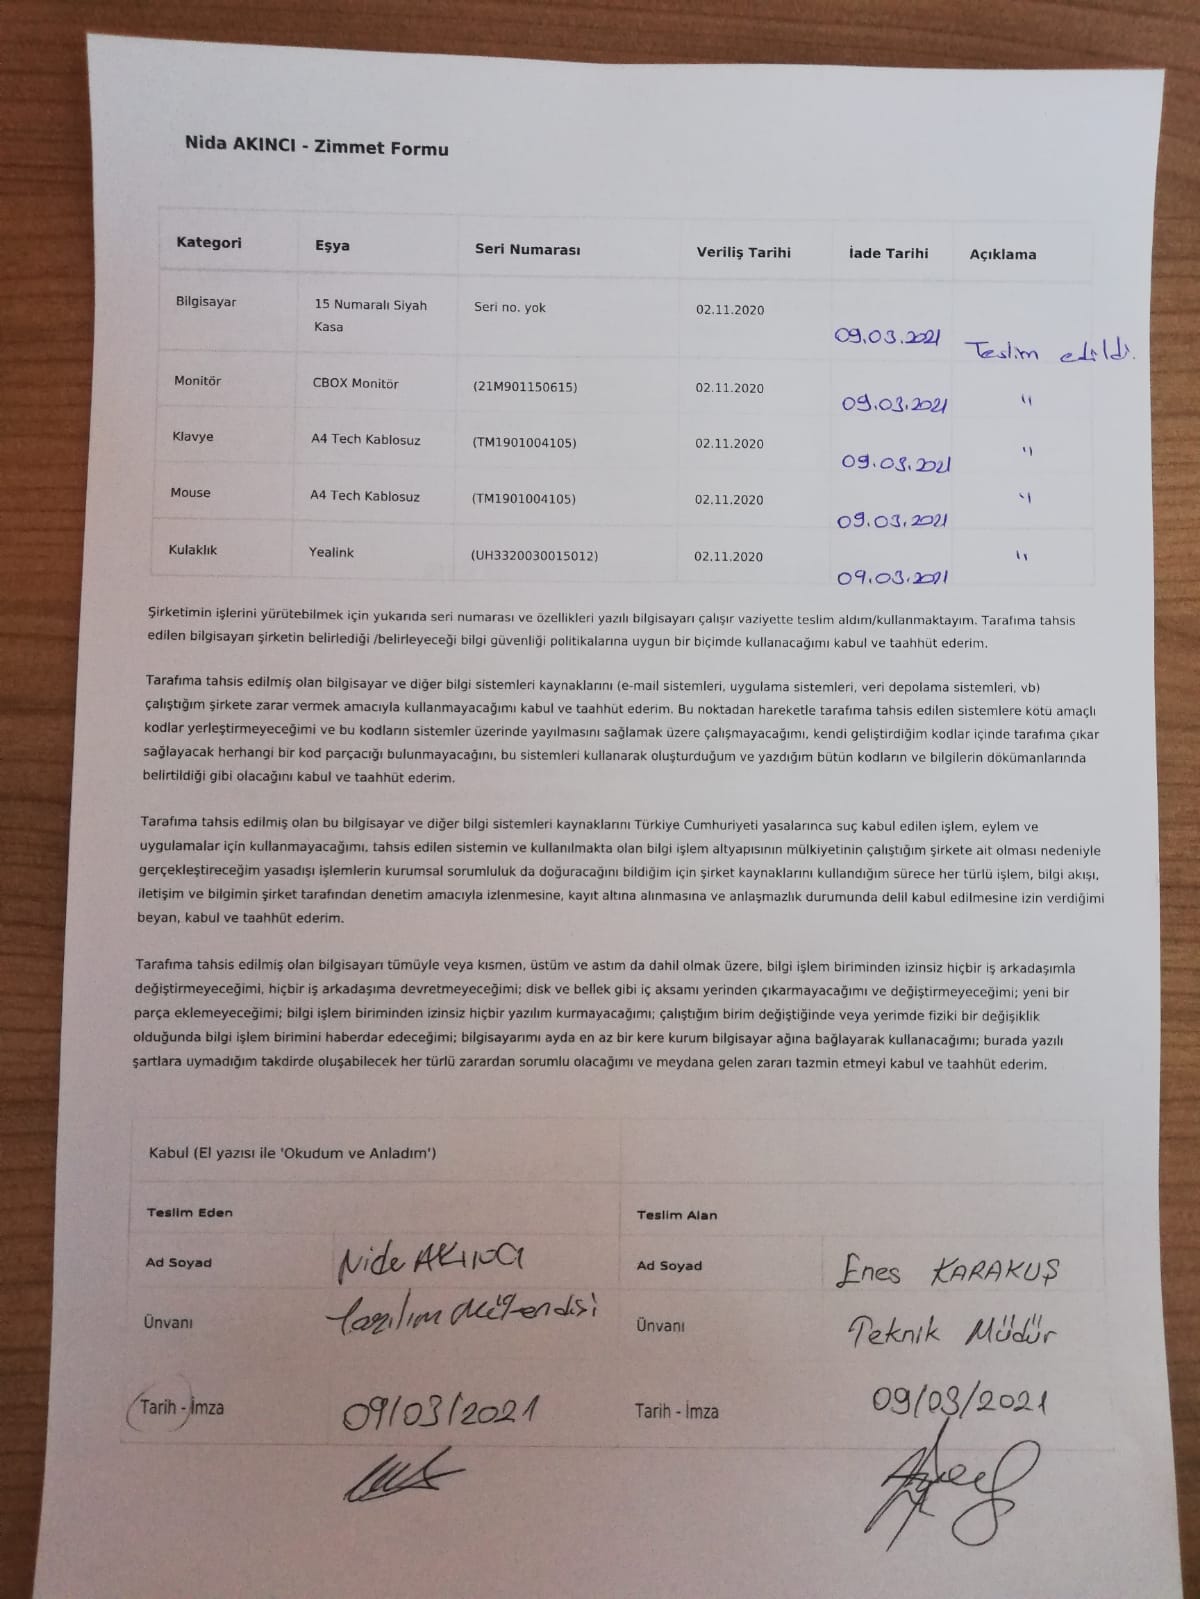 Nida AKINCI - Zimmet Formu
Kategori Eşya Seri Numarası Veriliş Tarihi İade Tarihi Açıklama
Bilgisayar 15 Numaralı Siyah Kasa Seri no. yok 02.11.2020 09.03.2021 Teslim edildi.
Monitör CBOX Monitör (21M901150615) 02.11.2020 09.03.2021 "
Klavye A4 Tech Kablosuz (TM1901004105) 02.11.2020 09.03.2021 "
Mouse A4 Tech Kablosuz (TM1901004105) 02.11.2020 09.03.2021 "
Kulaklık Yealink (UH3320030015012) 02.11.2020 09.03.2021 "
Şirketimin işlerini yürütebilmek için yukarıda seri numarası ve özellikleri yazılı bilgisayarı çalışır vaziyette teslim aldım/kullanmaktayım. Tarafıma tahsis
edilen bilgisayarı şirketin belirlediği /belirleyeceği bilgi güvenliği politikalarına uygun bir biçimde kullanacağımı kabul ve taahhüt ederim.
Tarafıma tahsis edilmiş olan bilgisayar ve diğer bilgi sistemleri kaynaklarını (e-mail sistemleri, uygulama sistemleri, veri depolama sistemleri, vb)
çalıştığım şirkete zarar vermek amacıyla kullanmayacağımı kabul ve taahhüt ederim. Bu noktadan hareketle tarafıma tahsis edilen sistemlere kötü amaçlı
kodlar yerleştirmeyeceğimi ve bu kodların sistemler üzerinde yayılmasını sağlamak üzere çalışmayacağımı, kendi geliştirdiğim kodlar içinde tarafıma çıkar
sağlayacak herhangi bir kod parçacığı bulunmayacağını, bu sistemleri kullanarak oluşturduğum ve yazdığım bütün kodların ve bilgilerin dökümanlarında
belirtildiği gibi olacağını kabul ve taahhüt ederim.
Tarafıma tahsis edilmiş olan bu bilgisayar ve diğer bilgi sistemleri kaynaklarını Türkiye Cumhuriyeti yasalarınca suç kabul edilen işlem, eylem ve
uygulamalar için kullanmayacağımı, tahsis edilen sistemin ve kullanılmakta olan bilgi işlem altyapısının mülkiyetinin çalıştığım şirkete ait olması nedeniyle
gerçekleştireceğim yasadışı işlemlerin kurumsal sorumluluk da doğuracağını bildiğim için şirket kaynaklarını kullandığım sürece her türlü işlem, bilgi akışı,
iletişim ve bilgimin şirket tarafından denetim amacıyla izlenmesine, kayıt altına alınmasına ve anlaşmazlık durumunda delil kabul edilmesine izin verdiğimi
beyan, kabul ve taahhüt ederim.
Tarafıma tahsis edilmiş olan bilgisayarı tümüyle veya kısmen, üstüm ve astım da dahil olmak üzere, bilgi işlem biriminden izinsiz hiçbir iş arkadaşımla
değiştirmeyeceğimi, hiçbir iş arkadaşıma devretmeyeceğimi; disk ve bellek gibi iç aksamı yerinden çıkarmayacağımı ve değiştirmeyeceğimi; yeni bir
parça eklemeyeceğimi; bilgi işlem biriminden izinsiz hiçbir yazılım kurmayacağımı; çalıştığım birim değiştiğinde veya yerimde fiziki bir değişiklik
olduğunda bilgi işlem birimini haberdar edeceğimi; bilgisayarımı ayda en az bir kere kurum bilgisayar ağına bağlayarak kullanacağımı; burada yazılı
şartlara uymadığım takdirde oluşabilecek her türlü zarardan sorumlu olacağımı ve meydana gelen zararı tazmin etmeyi kabul ve taahhüt ederim.
Kabul (El yazısı ile 'Okudum ve Anladım')
Teslim Eden Teslim Alan
Ad Soyad Nida AKINCI Ad Soyad Enes KARAKUŞ
Ünvanı Yazılım Mühendisi Ünvanı Teknik Müdür
Tarih - İmza 09/03/2021 Tarih - İmza 09/03/2021